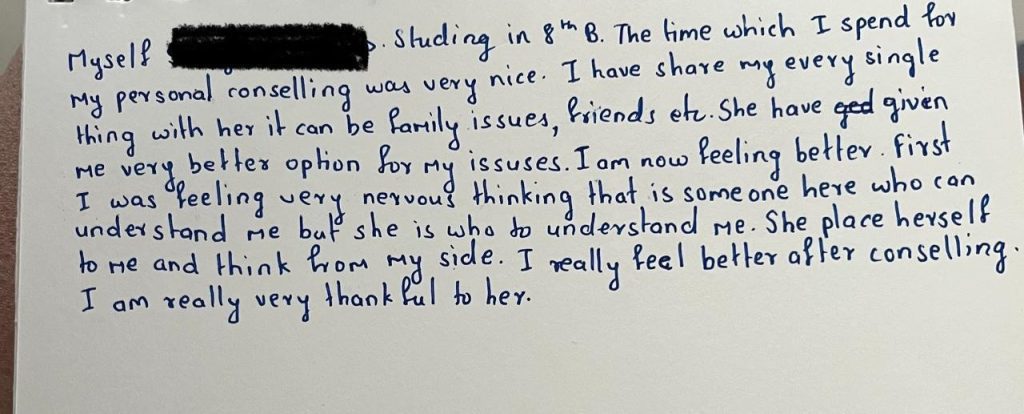 Myself . Studing in 8th B. The time which I spend for
My personal conselling was very nice. I have share my every single
thing with her it can be family issues, friends etc. She have ged given
me very better option for my issuses. I am now feeling better. First
I was feeling very nervous thinking that is someone here who can
understand me but she is who to understand me. She place herself
to me and think from my side. I really feel better after conselling.
I am really very thankful to her.